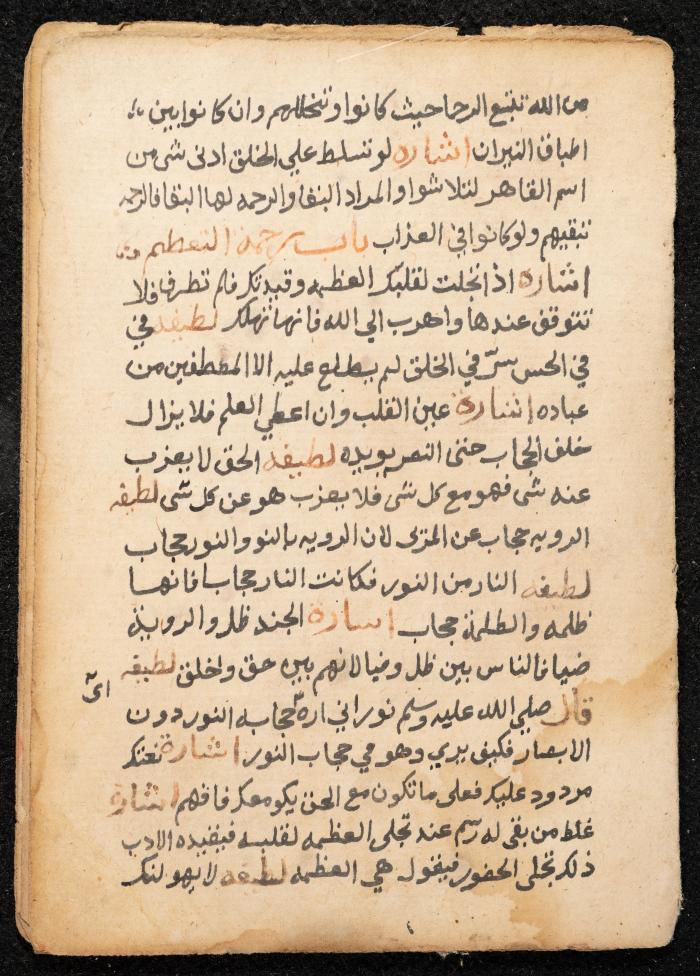 من الله تتبع الرحا حيث كانوا وتتخللهم وان كانوا بين
اطباق النيران اشاره لو تسلط علي الخلق ادنى شى من
اسم القاهر لتلاشوا والمراد البقا والرحمه لها البقا فالرحمه
تبقيهم ولو كانوا في العذاب باب ترجمة التعظيم
اشاره اذا تجلت لقلبك العظمه وقيدتك فلم تطرف فلا
تتوقف عندها واهرب الي الله فانها تهلك لطيفه في
في الحس سرّ في الخلق لم يطلع عليه الا المصطفين من
عباده اشارة عين القلب وان اعطي العلم فلا يزال
خلف الحجاب حتى النصر يويده لطيفه الحق لا يعزب
عنه شى فهو مع كل شى فلا يعزب هو عن كل شى لطيفه
الرويه حجاب عن المرئى لان الرويه بالنو والنور حجاب
لطيفه النار من النور فكانت النار حجابا فانها
ظلمه والظلمة حجاب اشارة الجند ظل والروية
ضيا فالناس بين ظل وضيا لانهم بين حق واخلق لطيفه
قال صلي الله عليه وسلم نوراني اره حجابه النور دون
اىّ
الابصار فكيف يري وهو في حجاب النور اشارة نعتك
مردود عليك فعلى ما تكون مع الحق يكو معك فافهم اشارة
غلط من بقى له رسم عند تجلى العظمه لقلبه فيفيده الادب
ذلك تجلى الحضور فيقول هي العظمه لطيفه لا يهولنك